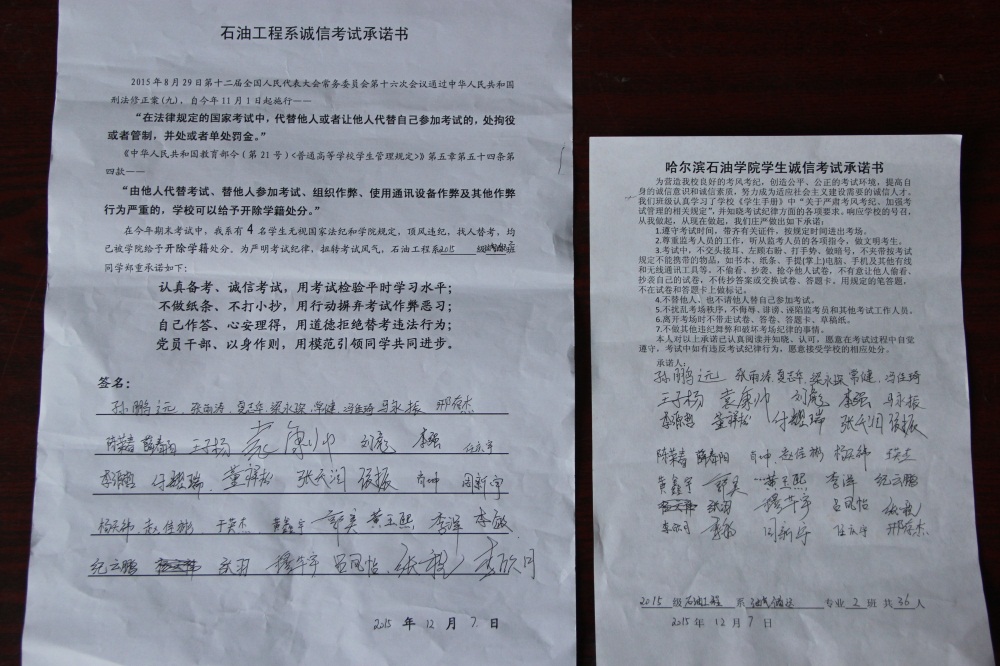 石油工程系诚信考试承诺书
2015年8月29日第十二届全国人民代表大会常务委员会第十六次会议通过中华人民共和国
刑法修正案(九),自今年11月1日起施行——
“在法律规定的国家考试中,代替他人或者让他人代替自己参加考试的,处拘役
或者管制,并处或者单处罚金。”
《中华人民共和国教育部令(第21号)<普通高等学校学生管理规定>》第五章第五十四条第
四款——
“由他人代替考试、替他人参加考试、组织作弊、使用通讯设备作弊及其他作弊
行为严重的,学校可以给予开除学籍处分。”
在今年期末考试中,我系有4名学生无视国家法纪和学院规定,顶风违纪,找人替考,均
已被学院给予开除学籍处分。为严明考试纪律,扭转考试风气,石油工程系2015 级
同学郑重承诺如下:
认真备考、诚信考试,用考试检验平时学习水平;
不做纸条、不打小抄,用行动摒弃考试作弊恶习;
自己作答、心安理得,用道德拒绝替考违法行为;
党员干部、以身作则,用模范引领同学共同进步。
签名:
孙鹏远 张雨涛 梁永琛 常健 冯佳琦 马永振 邢存杰
陈荣春 薛春阳 王子杨 袁康帅 刘彪 李强 任庆宇
李源懋 付耀瑞 董祥松 张天润 侯振 肖坤 周新宇
赵佳彬 黄鑫宇 郭奕 黄玉熙 李洋 李敏
纪云鹏 穆华宇 吕凤怡
2015 年 12 月 7 日
哈尔滨石油学院学生诚信考试承诺书
为营造我校良好的考风考纪,创造公平、公正的考试环境,提高自
身的诚信意识和诚信素质,努力成为适应社会主义建设需要的诚信人才。
我们班级认真学习了学校《学生手册》中“关于严肃考风考纪、加强考
试管理的相关规定”,并知晓考试纪律方面的各项要求。响应学校的号召,
从我做起,从现在做起,我们庄严做出如下承诺:
1.遵守考试时间,带齐有关证件,按规定时间进出考场。
2.尊重监考人员的工作,听从监考人员的各项指令,做文明考生。
3.考试中,不交头接耳、左顾右盼、打手势、做暗号,不夹带按考试
规定不能携带的物品,如书本、纸条、手提(掌上)电脑、手机及其他有线
和无线通讯工具等。不偷看、抄袭、抢夺他人试卷,不有意让他人偷看、
抄袭自己的试卷,不传抄答案或交换试卷、答题卡。用规定的笔答题,
不在试卷和答题卡上做标记。
4.不替他人、也不请他人替自己参加考试。
5.不扰乱考场秩序,不侮辱、诽谤、诬陷监考员和其他考试工作人员。
6.离开考场时不带走试卷、答卷、答题卡、草稿纸。
7.不做其他违纪舞弊和破坏考场纪律的事情。
本人对以上承诺已认真阅读并知晓、认可,愿意在考试过程中自觉
遵守,考试中如有违反考试纪律行为,愿意接受学校的相应处分。
承诺人:
孙鹏远 张雨涛 梁永琛 常健 冯佳琦
王子杨 袁康帅 刘彪 李强 马永振
李源懋 董祥松 付耀瑞 张天润 侯振
陈荣春 薛春阳 肖坤 赵佳彬
黄鑫宇 郭奕 黄玉熙 李洋 纪云鹏
穆华宇 吕凤怡
李敏 周新宇 任庆宇 邢存杰
2015 级 石油工程 系 专业 2 班 共 36 人
2015 年 12 月 7 日